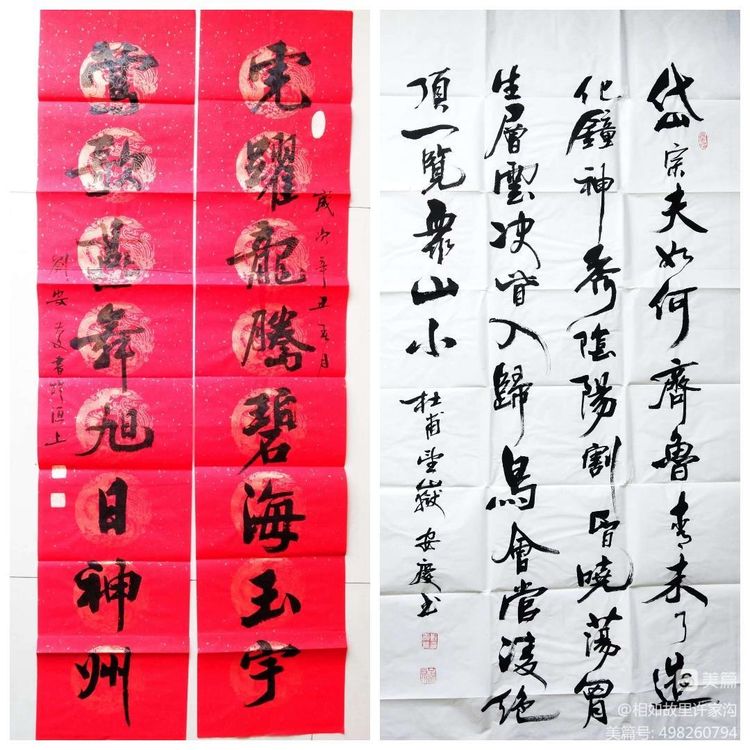 虎躍龍騰碧海玉宇
歲次辛丑月
莺歌燕舞旭日神州
劉安慶書於洹上
岱宗夫如何齊魯青未了造
化鐘神秀陰陽割昏曉荡胸
生層雲決眥入歸鳥會當凌绝
頂一覽眾山小
杜甫望嶽 安慶书
美篇
@相如故里许家沟
美篇号: 498260794